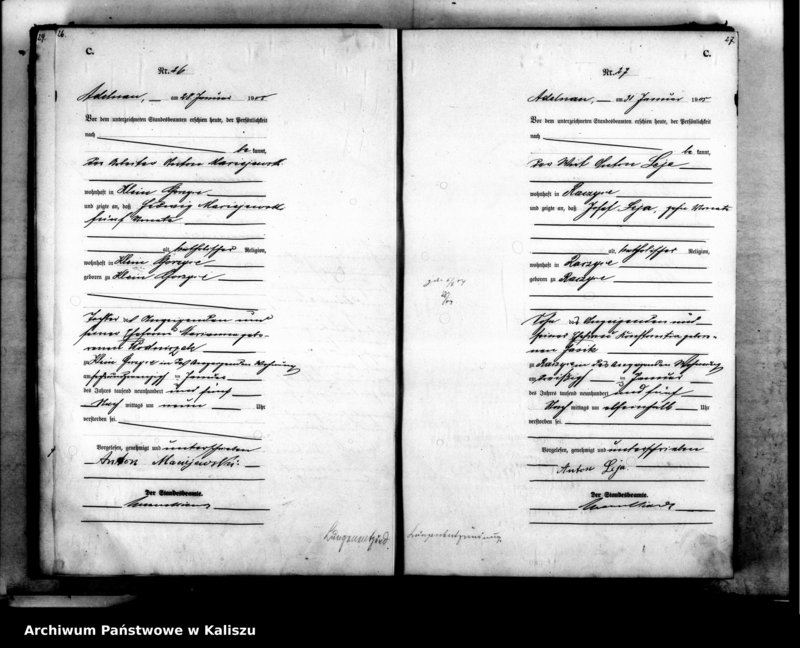 26.
C.
Nr. 26
Adelnau, am 28 Januar 1905
Vor dem unterzeichneten Standesbeamten erschien heute, der Persönlichkeit
nach
be kannt,
der Arbeiter Anton
wohnhaft in Klein
und zeigte an, daß Hedwig
fünf Monate
alt, katholischer Religion,
wohnhaft in Klein
geboren zu Klein
Tochter des Anzeigenden und
seiner Ehefrau Marianna gebo-
renen
zu Klein in des Anzeigenden Wohnung
am in Januar
des Jahres tausend neunhundert und fünf
Nach mittags um neun Uhr
verstorben sei.
Vorgelesen, genehmigt und unterschrieben
Anton Maciejewski
Der Standesbeamte.
27.
C.
Nr. 27
Adelnau, am 31 Januar 1905
Vor dem unterzeichneten Standesbeamten erschien heute, der Persönlichkeit
nach
be kannt,
der Wirt Anton Leja
wohnhaft in Raczyce
und zeigte an, daß Josef Leja, zehn Monate
alt, katholischer Religion,
wohnhaft in Raczyce
geboren zu Raczyce
Sohn des Anzeigenden und
seiner Ehefrau Konstantia gebore-
nen
zu Raczyce in des Anzeigenden Wohnung
am dreißig in Januar
des Jahres tausend neunhundert und fünf
Nach mittags um Uhr
verstorben sei.
Vorgelesen, genehmigt und unterschrieben
Anton Leja
Der Standesbeamte.
Lungenentzünd.
Lungenentzündung
Archiwum Państwowe w Kaliszu